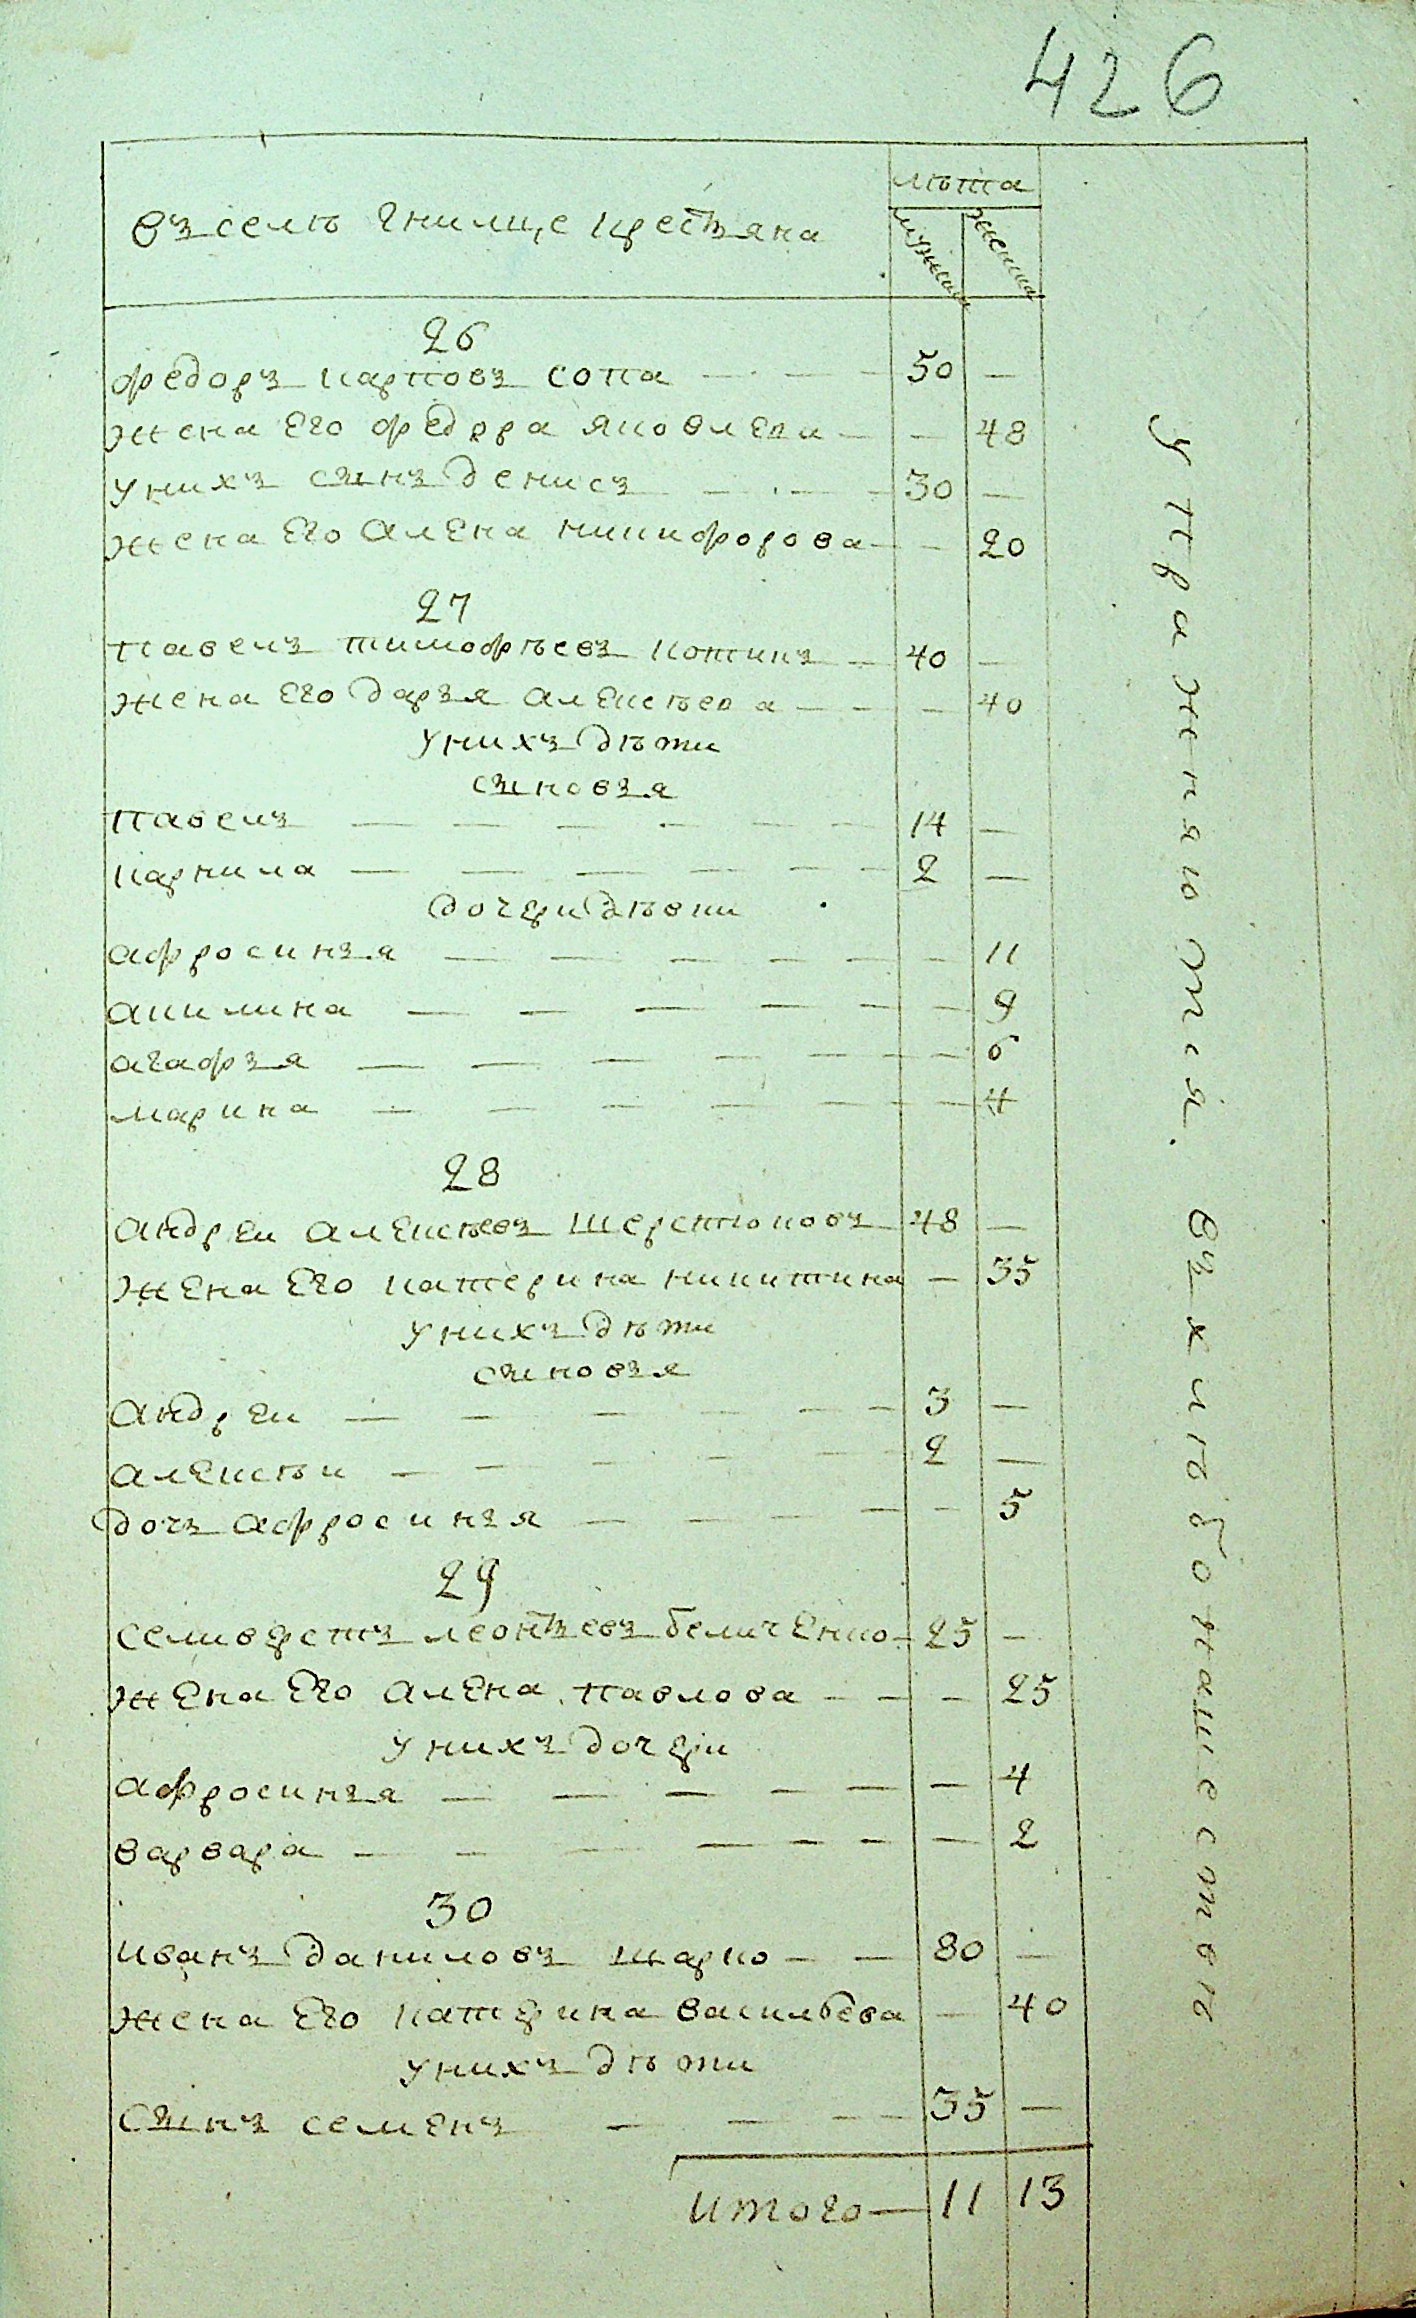 426
въ селѣ Гнилице крестьяна
лѣта
мужеска
женска
26
Федоръ Карповъ Сопа — — — 50 —
жена Его Федора Яковлева — — 48
у нихъ сынъ Денисъ — — — 30 —
жена Его Алена Никифорова — — 20
27
Павелъ Тимофѣевъ Котинъ — 40 —
жена Его Дарья Алексѣева — — — 40
у нихъ дѣти
сыновья
Павелъ — — — — — — 14 —
Карнила — — — — — — 2 —
дочери дѣвки
Афросинья — — — — — — 11
Акилина — — — — — — 9
Агафья — — — — — — — 6
Марина — — — — — — — 4
28
Андреи Алексѣевъ Шерстюковъ 48 —
жена Его Катерина Никитина — 35
у нихъ дѣти
сыновья
Андреи — — — — — — 3 —
Алексѣи — — — — — — 2 —
дочь Афросинья — — — — — 5
29
Селиверстъ Леонтьевъ Беличенко — 25 —
жена Его Алена Павлова — — — 25
у нихъ дочери
Афросинья — — — — — — 4
Варвара — — — — — — — 2
30
Иванъ Даниловъ Шарко — — 80 —
жена Его Катерина Васильева — 40
у нихъ дѣти
сынъ Семенъ — — — — 35 —
итого — 11 13
упражняются въ хлѣбопашествѣ